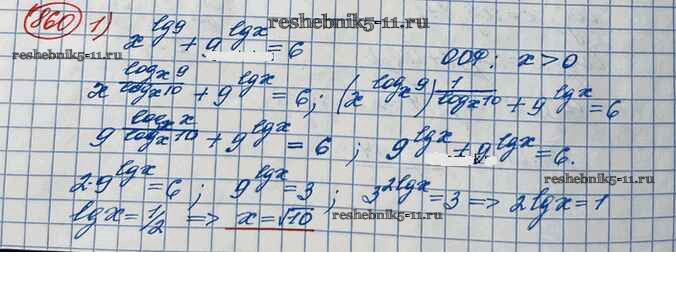 reshebnik5-11.ru
860 1) x^{lg9} + 9^{lgx} = 6
reshebnik5-11.ru
ООФ: x > 0
x^{\frac{log_x 9}{log_x 10}} + 9^{lgx} = 6; (x^{log_x 9})^{\frac{1}{log_x 10}} + 9^{lgx} = 6
9^{\frac{log_x x}{log_x 10}} + 9^{lgx} = 6; 9^{lgx} + 9^{lgx} = 6.
2·9^{lgx} = 6; 9^{lgx} = 3; 3^{2lgx} = 3 => 2lgx = 1
lgx = 1/2 => x = √10 reshebnik5-11.ru
reshebnik5-11.ru